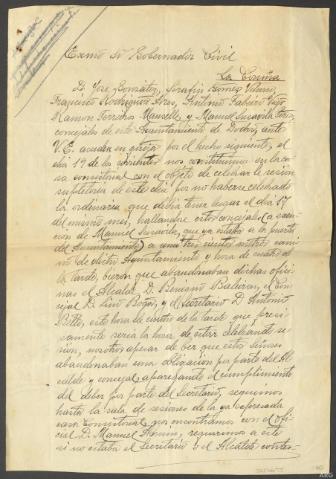 Excmo Sr Gobernador Civil
La Coruña
D. José González, Serafin Gómez
Francisco Rodriguez Ares, Antonio
Ramon Ferreiro Mancelle y Manuel
concejales de este Ayuntamiento de ante
V.E. acuden en queja por el hecho siguiente, el
dia 19 de los corrientes nos constituimos en la ca
sa consistorial con el objeto de celebrar la sesion
supletoria de este dia por no haberse celebrado
la ordinaria que debia tener lugar el dia 17
del mismo mes, hallandose estos concejales a excep
cion de Manuel que ya estaba a la puerta
del Ayuntamiento, a unos metros cami
no de dicho Ayuntamiento y hora de cuatro de
la tarde, vieron que abandonaban dichas ofici
nas el Alcalde D. Benigno el con
cejal D. Lino y el Secretario D. Antonio
esta hora de cuatro de la tarde que preci
samente seria la hora de estar celebrando se
sion, nosotros apesar de ver que estos Señores
abandonaban una obligacion por parte del Al
calde y concejal aparejando el cumplimiento
del deber por parte del Secretario, seguimos
hasta la sala de sesiones de la ya expresada
casa consistorial que encontramos con el ofi
cial D. Manuel requerimos a este
si no estaba el Secretario o el Alcalde contes-